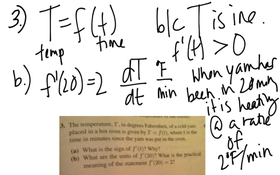 3) T = f(t)
temp time
b/c T is inc.
f'(t) > 0
b.) f'(20) = 2 dT/dt °F/min
When yam has
been in 20 min
it is heating
@ a rate
of
2°F/min
3. The temperature, T, in degrees Fahrenheit, of a cold yam
placed in a hot oven is given by T = f(t), where t is the
time in minutes since the yam was put in the oven.
(a) What is the sign of f'(t)? Why?
(b) What are the units of f'(20)? What is the practical
meaning of the statement f'(20) = 2?